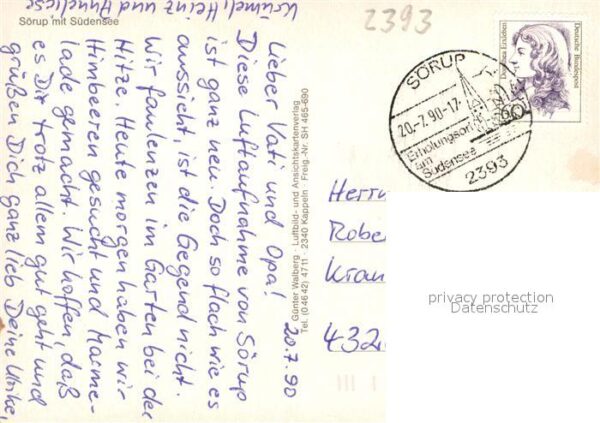 Sörup mit Südensee
20.7.90
Lieber Vati und Opa!
Diese Luftaufnahme von Sörup
ist ganz neu. Doch so flach wie es
aussieht, ist die Gegend nicht.
Wir faulenzen im Garten bei der
Hitze. Heute morgen haben wir
Himbeeren gesucht und Marme-
lade gemacht. Wir hoffen, daß
es Dir trotz allem gut geht und
grüßen Dich ganz lieb Deine Ulrike,
Krümel, Heinz und Anneliese
Günter Walberg · Luftbild- und Ansichtskartenverlag
Tel. (04642) 4711 · 2340 Kappeln · Freig.-Nr. SH 465-690
2393
Dorothea Erxleben
Deutsche Bundespost
60
SÖRUP
20.-7.90-17
Erholungsort
am
Südensee
2393
Herrn
Robe
Kran
432
privacy protection
Datenschutz